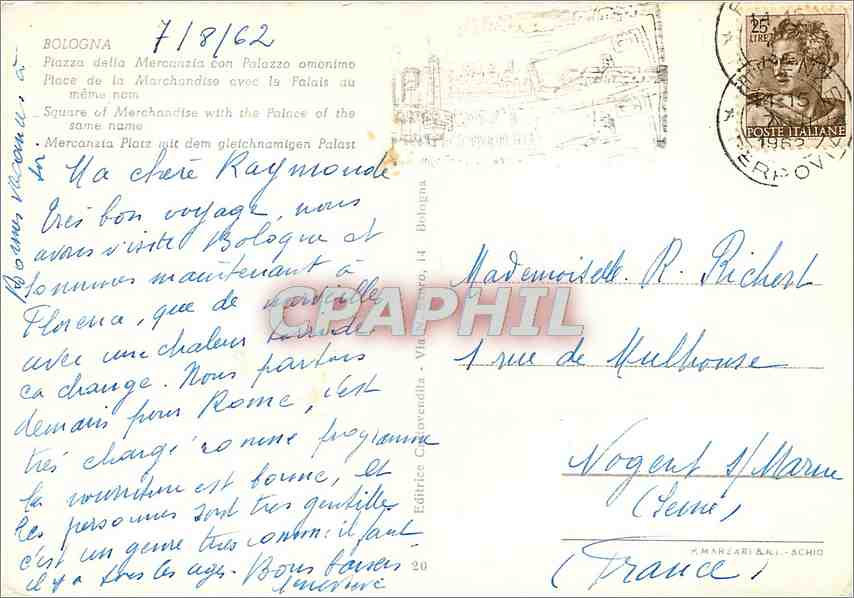 BOLOGNA
7/8/62
Piazza della Mercanzia con Palazzo omonimo
Place de la Marchandise avec le Palais du
même nom
Square of Merchandise with the Palace of the
same name
Mercanzia Platz mit dem gleichnamigen Palast
Bonnes vacances à
toi
Ma chère Raymonde
Très bon voyage, nous
avons visité Bologne et
sommes maintenant à
Florence, que de merveille
avec une chaleur torride
ça change. Nous partons
demain pour Rome, c'est
très chargé comme programme
la nourriture est bonne, et
les personnes sont très gentille
c'est un genre très il faut
il y a tous les ages. Bons baisers
CPAPHIL
Editrice - Via 14 Bologna
20
25
LIRE
POSTE ITALIANE
15
1962
Mademoiselle R. Richert
1 rue de Mulhouse
Nogent s/Marne
(Seine)
(France)
P. MARZARI S.R.L. - SCHIO